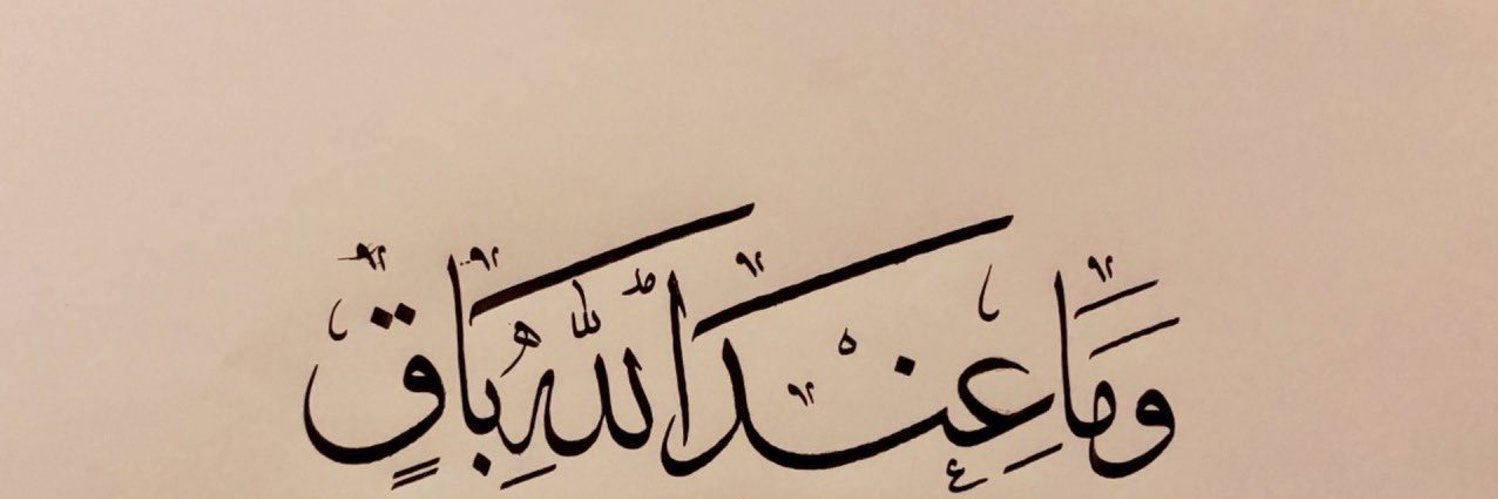 وَمَا عِنْدَ اللّٰهِ بَاقٍ